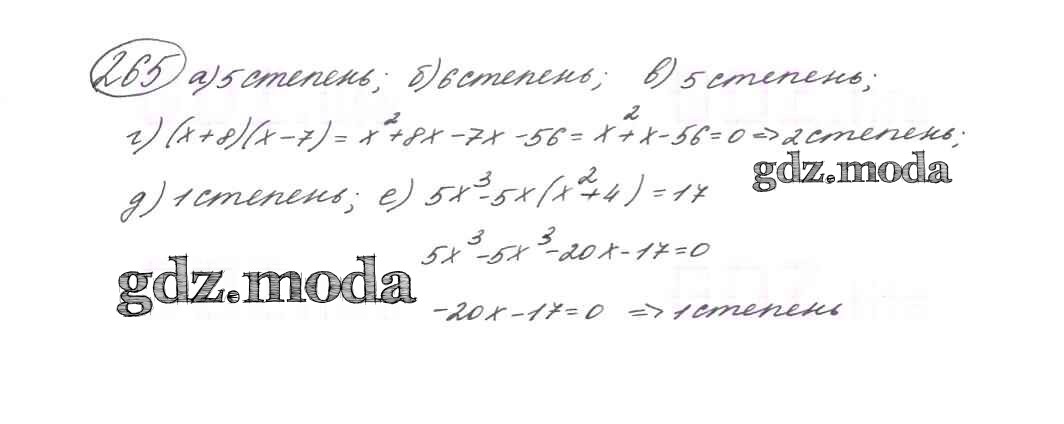 265 а) 5 степень; б) 6 степень; в) 5 степень;
г) (x+8)(x-7) = x²+8x-7x-56 = x²+x-56=0 => 2 степень;
gdz.moda
д) 1 степень; е) 5x³-5x(x²+4) = 17
5x³-5x³-20x-17=0
gdz.moda
-20x-17=0 => 1 степень